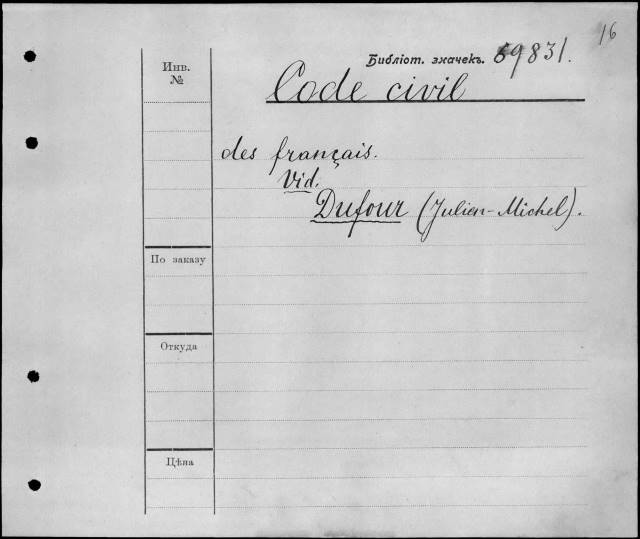 16
Библіот. значекъ. 59831.
Инв.
№
Code civil
des français.
Vid.
Dufour (Julien-Michel).
По заказу
Откуда
Цѣна